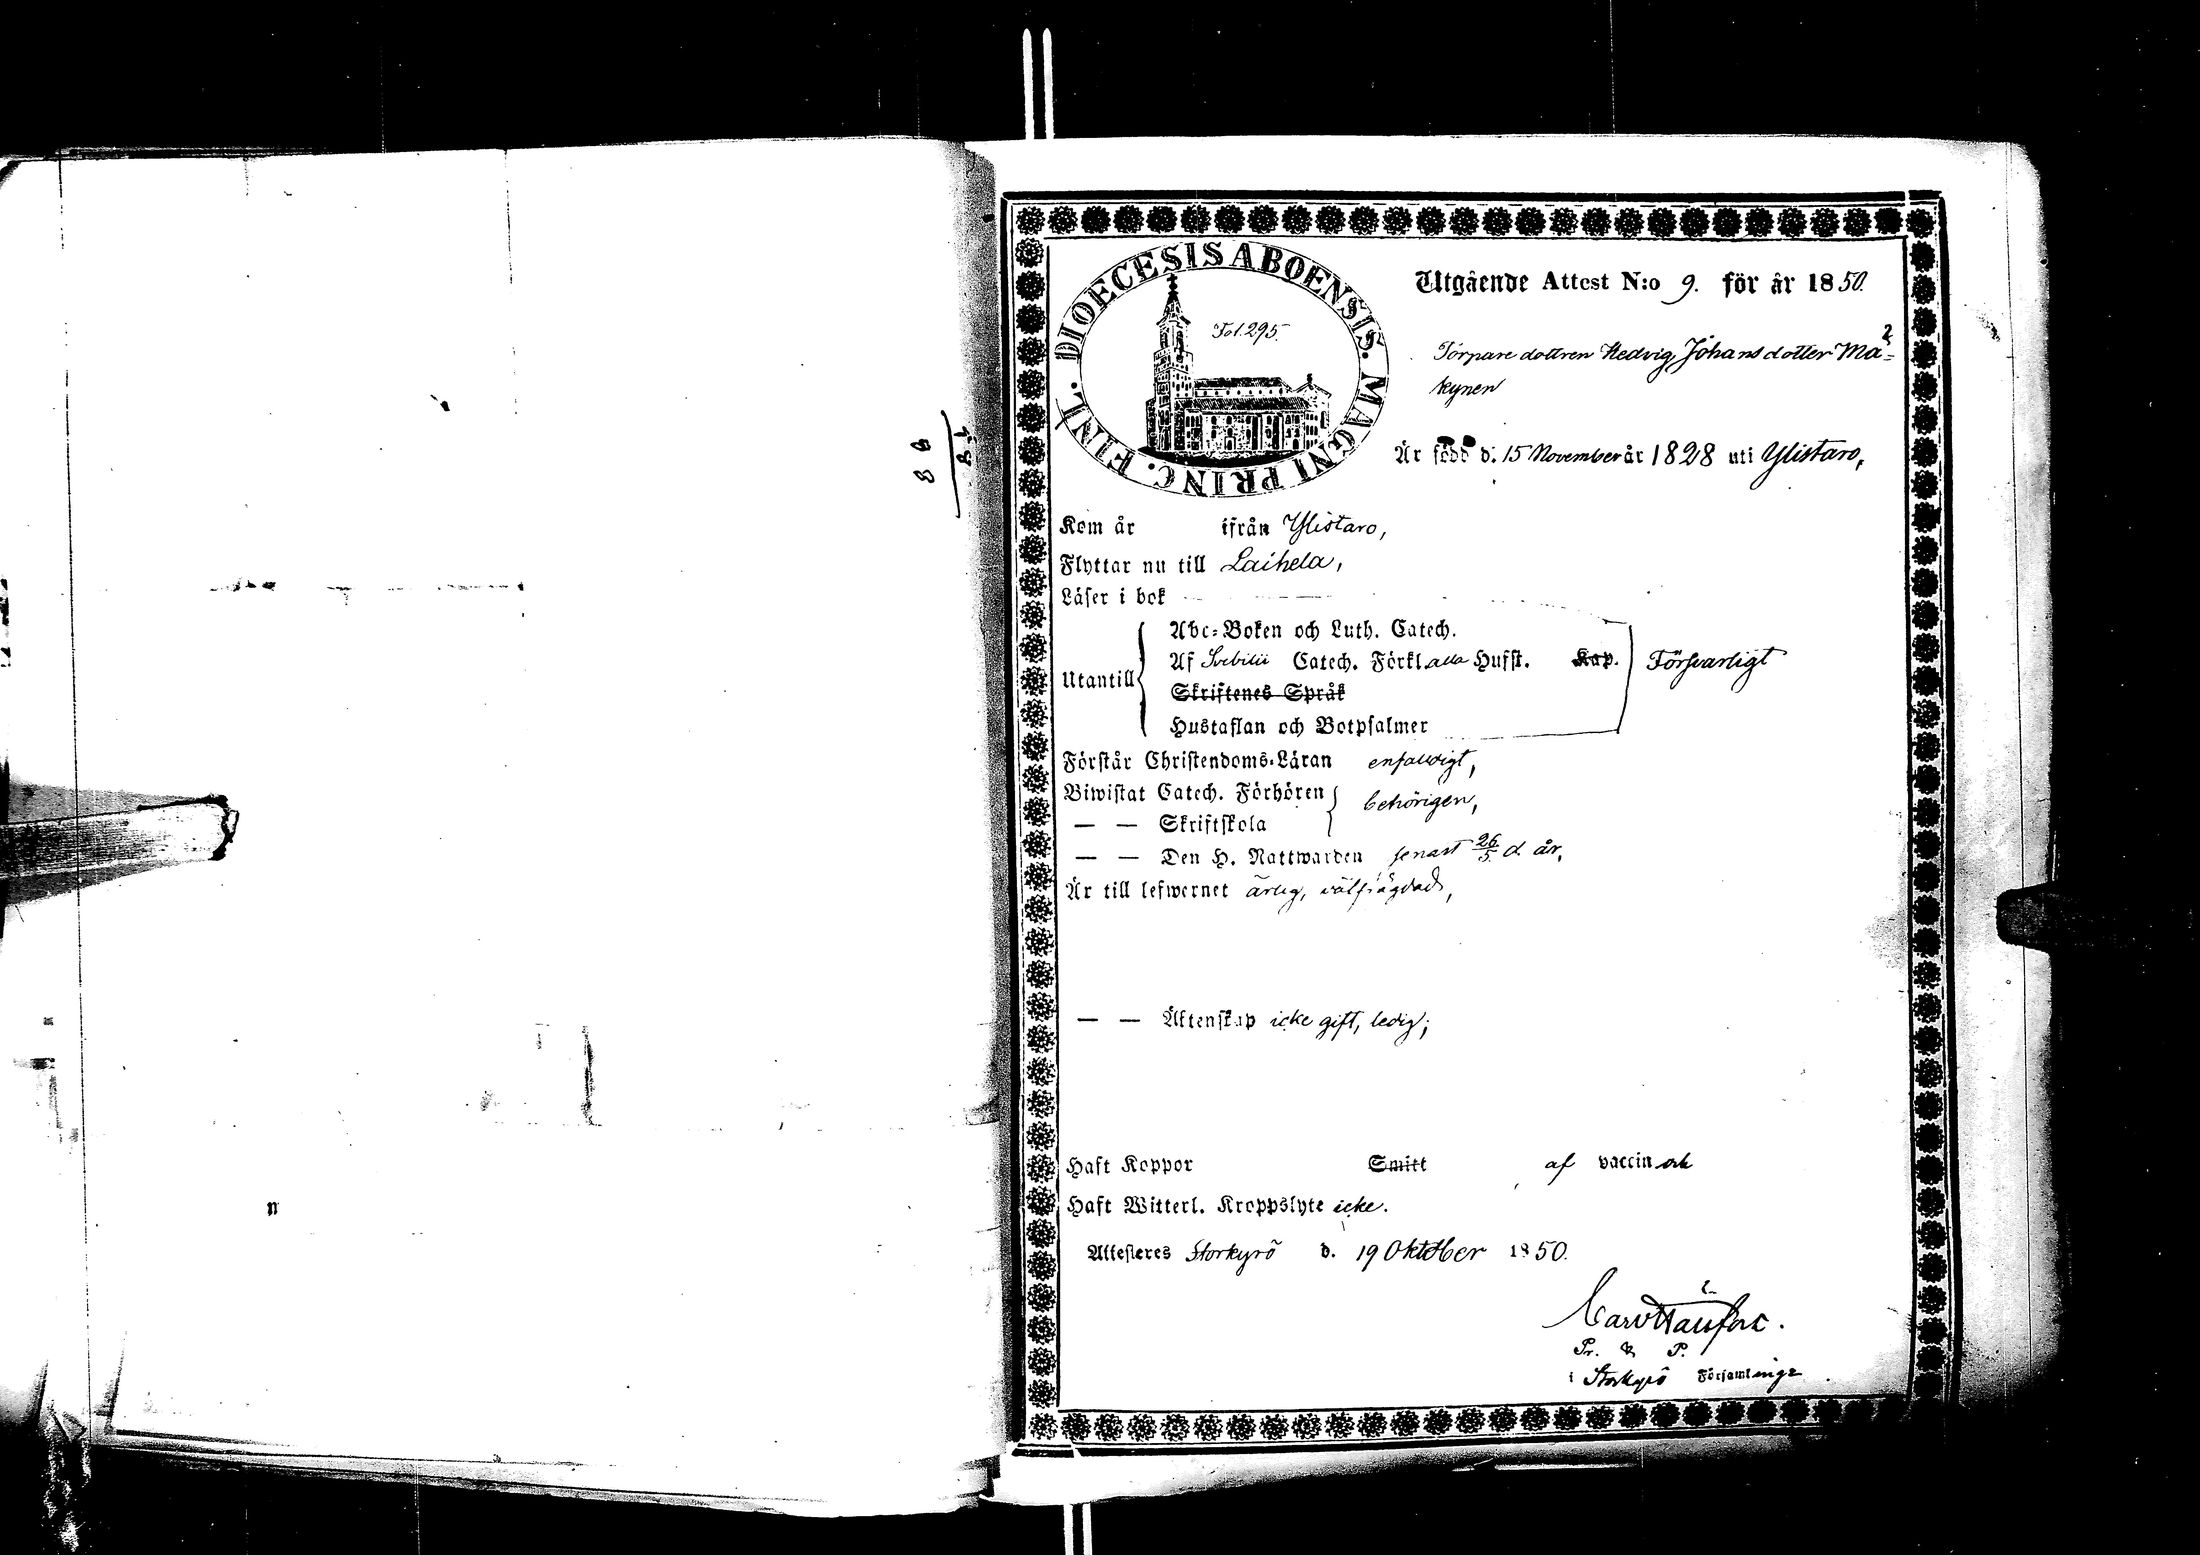 DIOECESIS ABOENSIS. MAGNI PRINC. FINL.
Fol. 295.
Utgående Attest N:o 9. för år 1850.
Torpare dottren Hedvig Johansdotter Mä=
kynen
Är född d. 15 November år 1828 uti Ylistaro,
Kom år ifrån Ylistaro,
Flyttar nu till Laihela,
Läser i bok
Abc=Boken och Luth. Catech.
Utantill Af Svebilii Catech. Förkl. alla Hufst. Kap. Försvarligt
Skriftenes Språk
Hustaflan och Botpsalmer
Förstår Christendoms=Läran enfaldigt,
Biwistat Catech. Förhören behörigen,
— — Skriftskola
— — Den H. Nattwarden senast 26/5 d. år,
Är till lefwernet ärlig, välfrägdad,
— — Äktenskap icke gift, ledig;
Haft Koppor Smitt af vaccin
Haft Witterl. Kroppslyte icke.
Attesteres Storkyrö d. 19 Oktober 1850.
Pr. & P.
i Storkyrö Församling